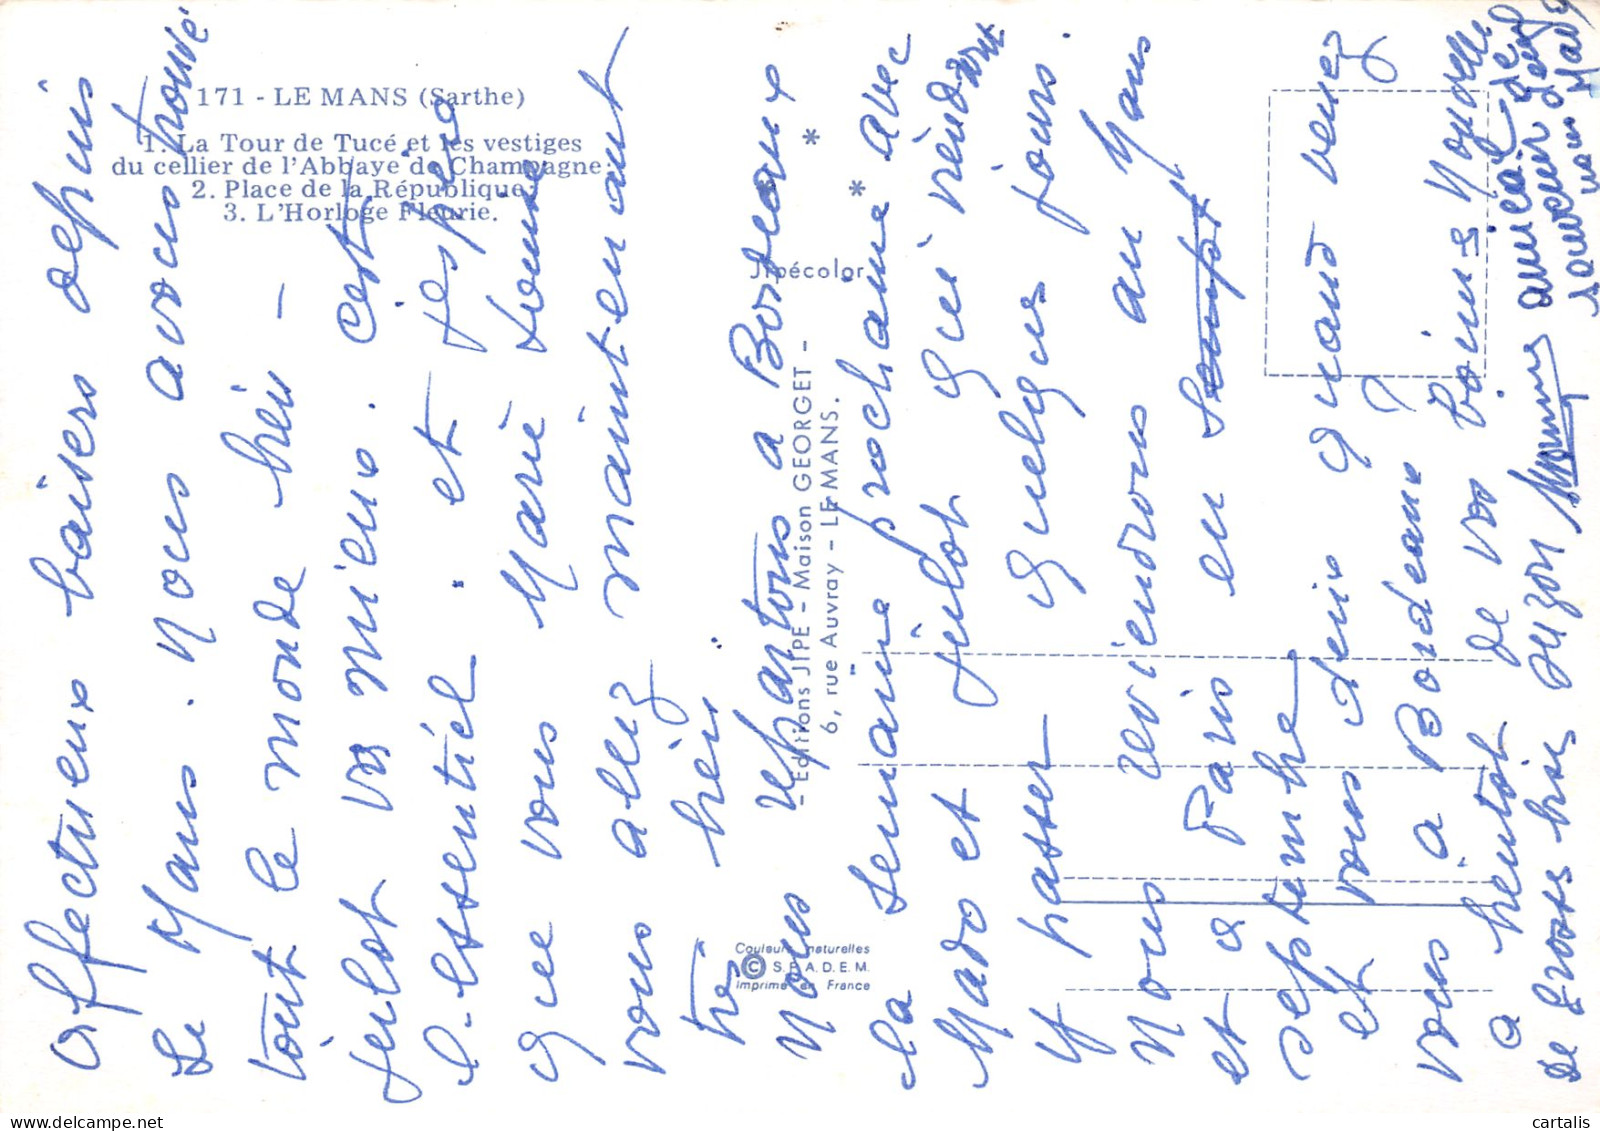 171 - LE MANS (Sarthe)
1. La Tour de Tucé et les vestiges
du cellier de l'Abbaye de Champagne
2. Place de la République.
3. L'Horloge Fleurie.
Jipécolor
- Editions JIPE - Maison GEORGET -
6, rue Auvray - LE MANS.
Couleurs naturelles
© S.P.A.D.E.M.
Imprimé en France
Affectueux baisers depuis
Le Mans. Nous avons trouvé
tout le monde bien -
julot va mieux. c'est
l'essentiel. et j'espère
que vous Marie Louise
vous allez maintenant
très bien.
Nous repartons a Bordeaux
la semaine prochaine avec
Mado et julot qui viendront
y passer quelques jours.
Nous reviendrons au Mans
et a Paris en
septembre
et vous deux quand venez
vous a Bordeaux ?
a bientot de vos bonnes nouvelles
de gross bis Suzon
amical
souvenir
cartalis